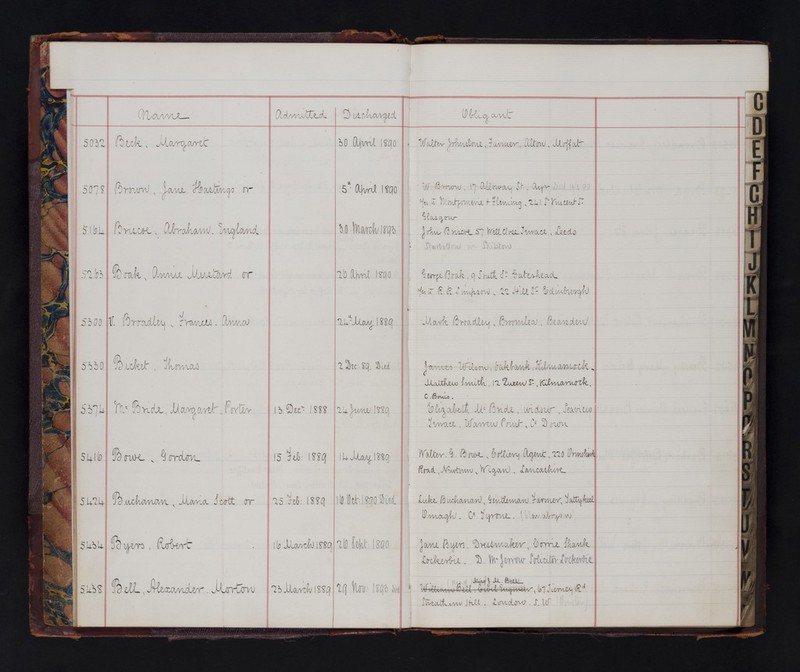 Name Admitted Discharged Obligant
5032 Beck, Margaret 30 April 1890 Walter Johnstone, Farmer, Alton, Moffat
5078 Brown, Jane Hastings or 15th April 1890 W. Brown, 17 Alloway St, Ayr
Montgomerie & Fleming, 241 St Vincent St
Glasgow
5164 Briscoe, Abraham. England 30 March 1893 John Briscoe 57 Well Close Terrace, Leeds
5263 Boak, Annie Mustard or 26 April 1890 George Boak, 9 South St Gateshead
R. R. Simpson, 22 Hill St Edinburgh
5300 V. Broadley, Frances Anna 24th May 1889 Mark Broadley, Bromlea, Beandon
5330 Bicket, Thomas 2 Dec 89 Died James Wilson, Oakbank, Kilmarnock
Matthew Smith, 12 Queen St, Kilmarnock
5374 Mc Bride, Margaret Porter 13 Decr 1888 24 June 1889 Elizabeth Mc Bride, widow, Seaview
Terrace, Warren Point, Co Down
5416 Bowe, Gordon 15 Feb. 1889 14 May 1889 Walter G. Bowe, Colliery Agent, 220 Ormskirk
Road, Newtown, Wigan, Lancashire
5424 Buchanan, Maria Scott or 25 Feb. 1889 16 Oct 1890 Died Luke Buchanan, Gentleman Farmer,
Omagh, Co Tyrone
5434 Byers, Robert 16 March 1889 26 Sept. 1890 Jane Byers, Dressmaker, Corrie Shank
Lockerbie. D. McJerrow Solicitor Lockerbie
5438 Bell, Alexander Morton 23 March 1889 29 Nov. William Bell, Civil Engineer, 67 Tierney Rd
Streatham Hill, London, S.W
C
D
E
F
G
H
I
J
K
L
M
N
O
P
R
S
T
U
V
W